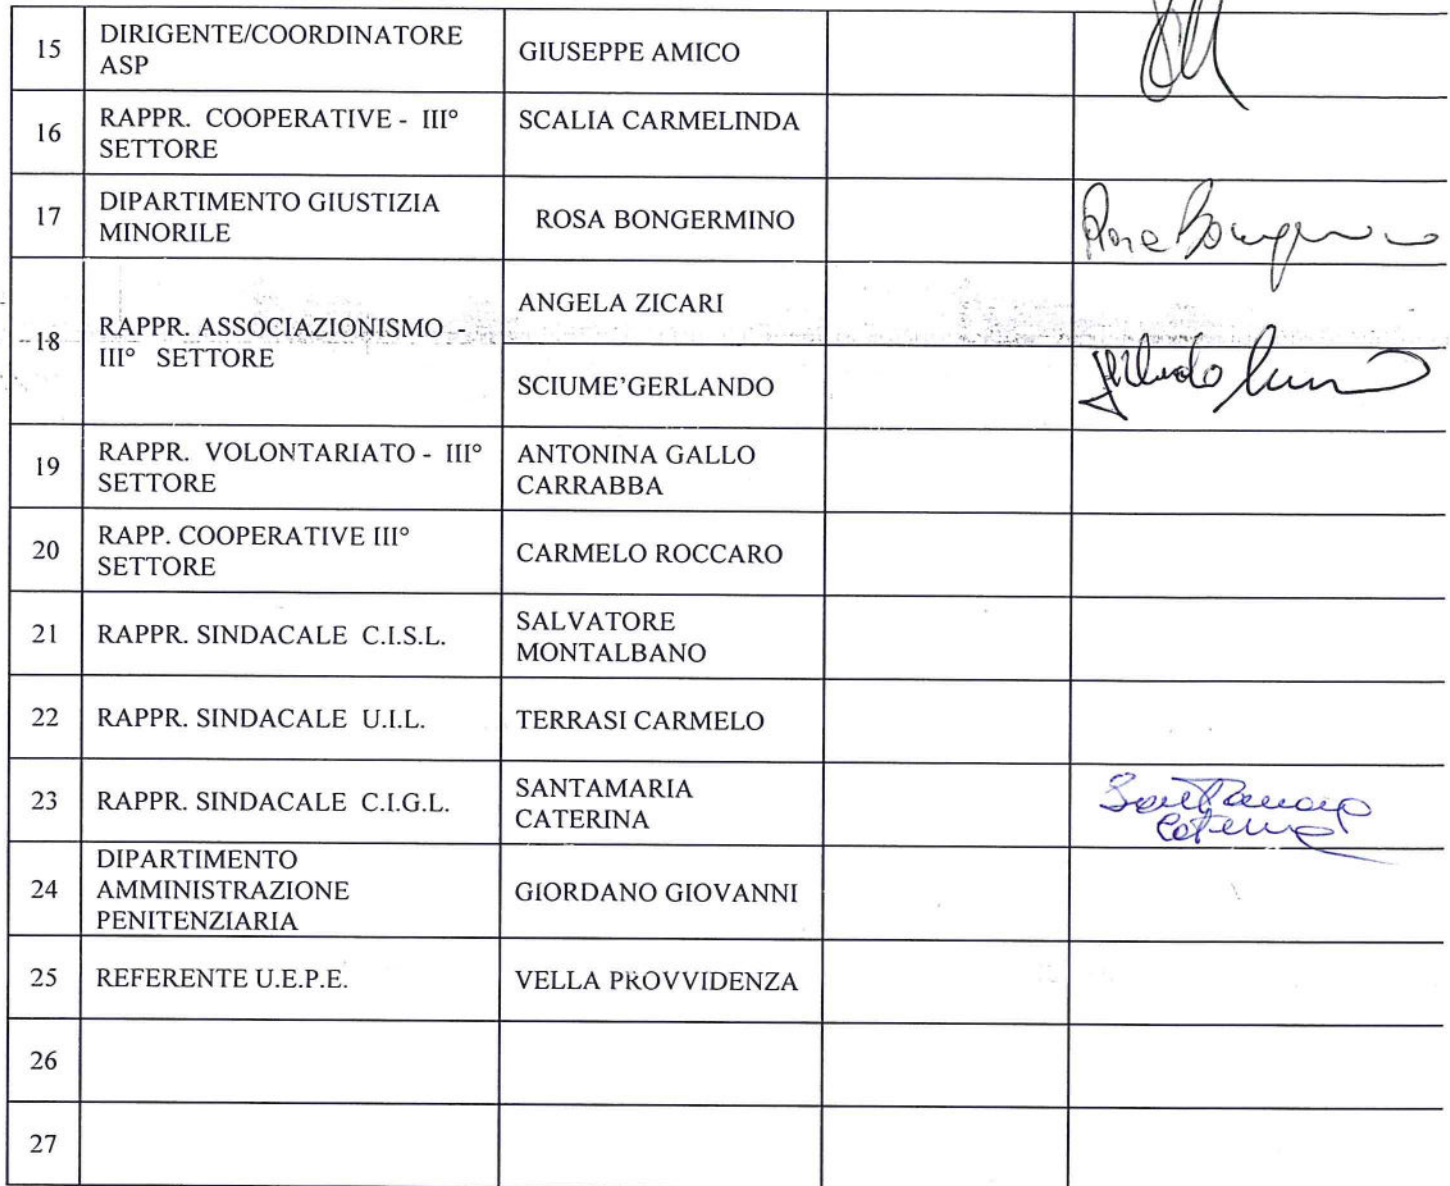 15 DIRIGENTE/COORDINATORE ASP GIUSEPPE AMICO
16 RAPPR. COOPERATIVE - III° SETTORE SCALIA CARMELINDA
17 DIPARTIMENTO GIUSTIZIA MINORILE ROSA BONGERMINO Rosa Bongermino
18 RAPPR. ASSOCIAZIONISMO - III° SETTORE ANGELA ZICARI
SCIUME'GERLANDO
19 RAPPR. VOLONTARIATO - III° SETTORE ANTONINA GALLO CARRABBA
20 RAPP. COOPERATIVE III° SETTORE CARMELO ROCCARO
21 RAPPR. SINDACALE C.I.S.L. SALVATORE MONTALBANO
22 RAPPR. SINDACALE U.I.L. TERRASI CARMELO
23 RAPPR. SINDACALE C.I.G.L. SANTAMARIA CATERINA Santamaria Caterina
24 DIPARTIMENTO AMMINISTRAZIONE PENITENZIARIA GIORDANO GIOVANNI
25 REFERENTE U.E.P.E. VELLA PROVVIDENZA
26
27